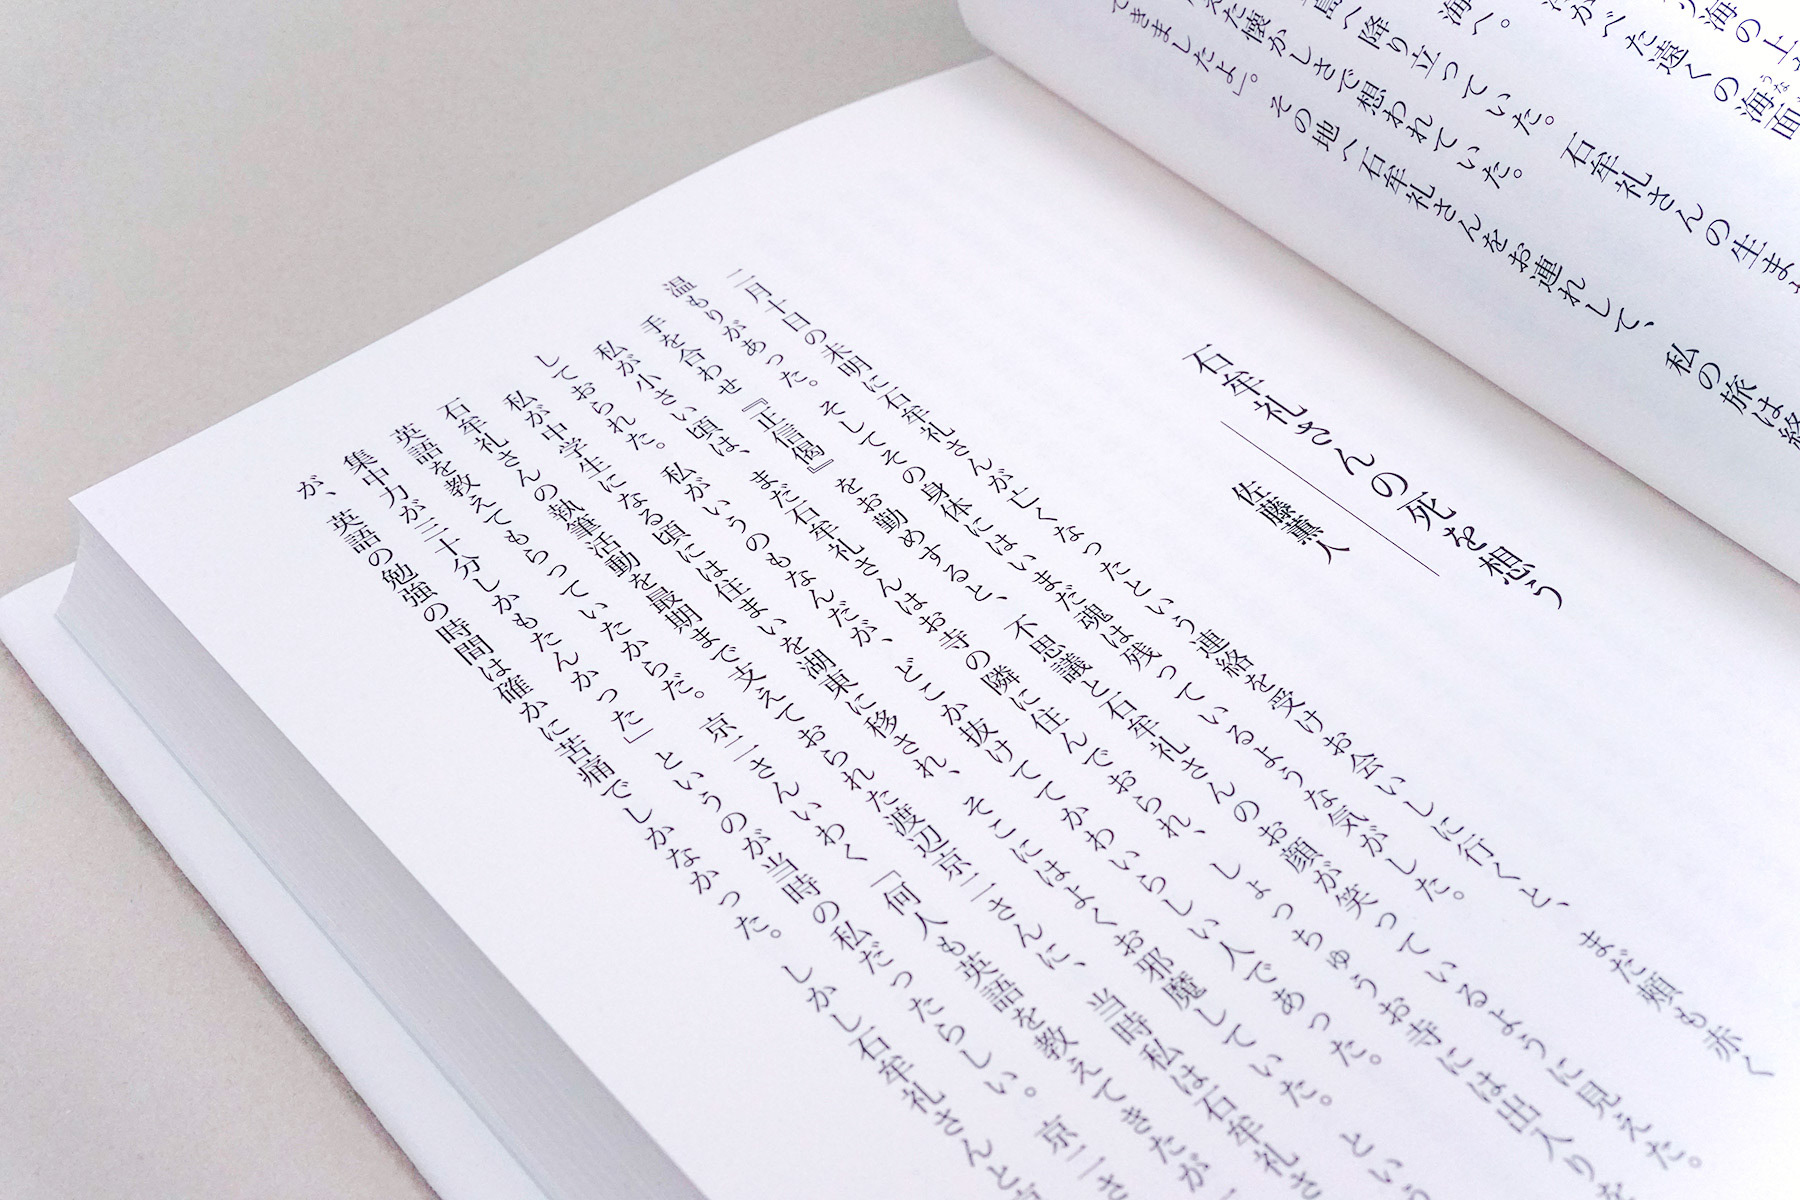 海の上
がべた遠くの海面
海へ。
島へ降り立っていた。石牟礼さんの生ま
た懐かしさで想われていた。
できましたよ」。その地へ石牟礼さんをお連れして、私の旅は終
石牟礼さんの死を想う
佐藤薫人
二月十日の未明に石牟礼さんが亡くなったという連絡を受けお会いしに行くと、まだ頬も赤く
温もりがあった。そしてその身体にはいまだ魂は残っているような気がした。
手を合わせ『正信偈』をお勤めすると、不思議と石牟礼さんのお顔が笑っているように見えた。
私が小さい頃は、まだ石牟礼さんはお寺の隣に住んでおられ、しょっちゅうお寺には出入り
しておられた。私がいうのもなんだが、どこか抜けててかわいらしい人であった。
私が中学生になる頃には住まいを湖東に移され、そこにはよくお邪魔していた。という
石牟礼さんの執筆活動を最期まで支えておられた渡辺京二さんに、当時私は石牟礼さ
英語を教えてもらっていたからだ。京二さんいわく「何人も英語を教えてきたが
集中力が三十分しかもたんかった」というのが当時の私だったらしい。京二さ
が、英語の勉強の時間は確かに苦痛でしかなかった。しかし石牟礼さんと